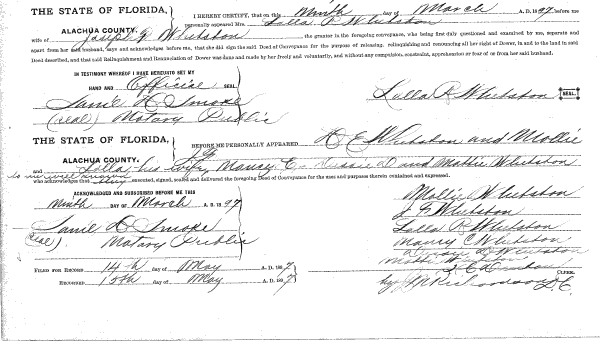 THE STATE OF FLORIDA,
ALACHUA COUNTY.
I HEREBY CERTIFY, that on this Ninth day of March A. D. 1897 before me
personally appeared Mrs. Lolla R Whitston
wife of Joseph G Whitston, the grantor in the foregoing conveyance, who being first duly questioned and examined by me, separate and
apart from her said husband, says and acknowledges before me, that she did sign the said Deed of Conveyance for the purpose of releasing, relinquishing and renouncing all her right of Dower, in and to the land in said
Deed described, and that said Relinquishment and Renunciation of Dower was done and made by her freely and voluntarily, and without any compulsion, constraint, apprehension or fear of or from her said husband.
IN TESTIMONY WHEREOF I HAVE HEREUNTO SET MY
HAND AND Official SEAL
Lolla R Whitston SEAL.
(seal) Notary Public
THE STATE OF FLORIDA,
ALACHUA COUNTY.
BEFORE ME PERSONALLY APPEARED E Whitston and Mollie
and Lolla his wife, Nancy C and Mattie Whitston
to me well known
who acknowledge they executed, signed, sealed and delivered the foregoing Deed of Conveyance for the uses and purposes therein contained and expressed.
ACKNOWLEDGED AND SUBSCRIBED BEFORE ME THIS
Ninth DAY OF March A. D. 1897
(seal). Notary Public
Mollie Whitston
Whitston
Lolla R Whitston
Nancy C Whitston
Whitston
FILED FOR RECORD 14th day of May A. D. 1897
RECORDED 15th day of May A. D. 1897
CLERK.
by D.C.